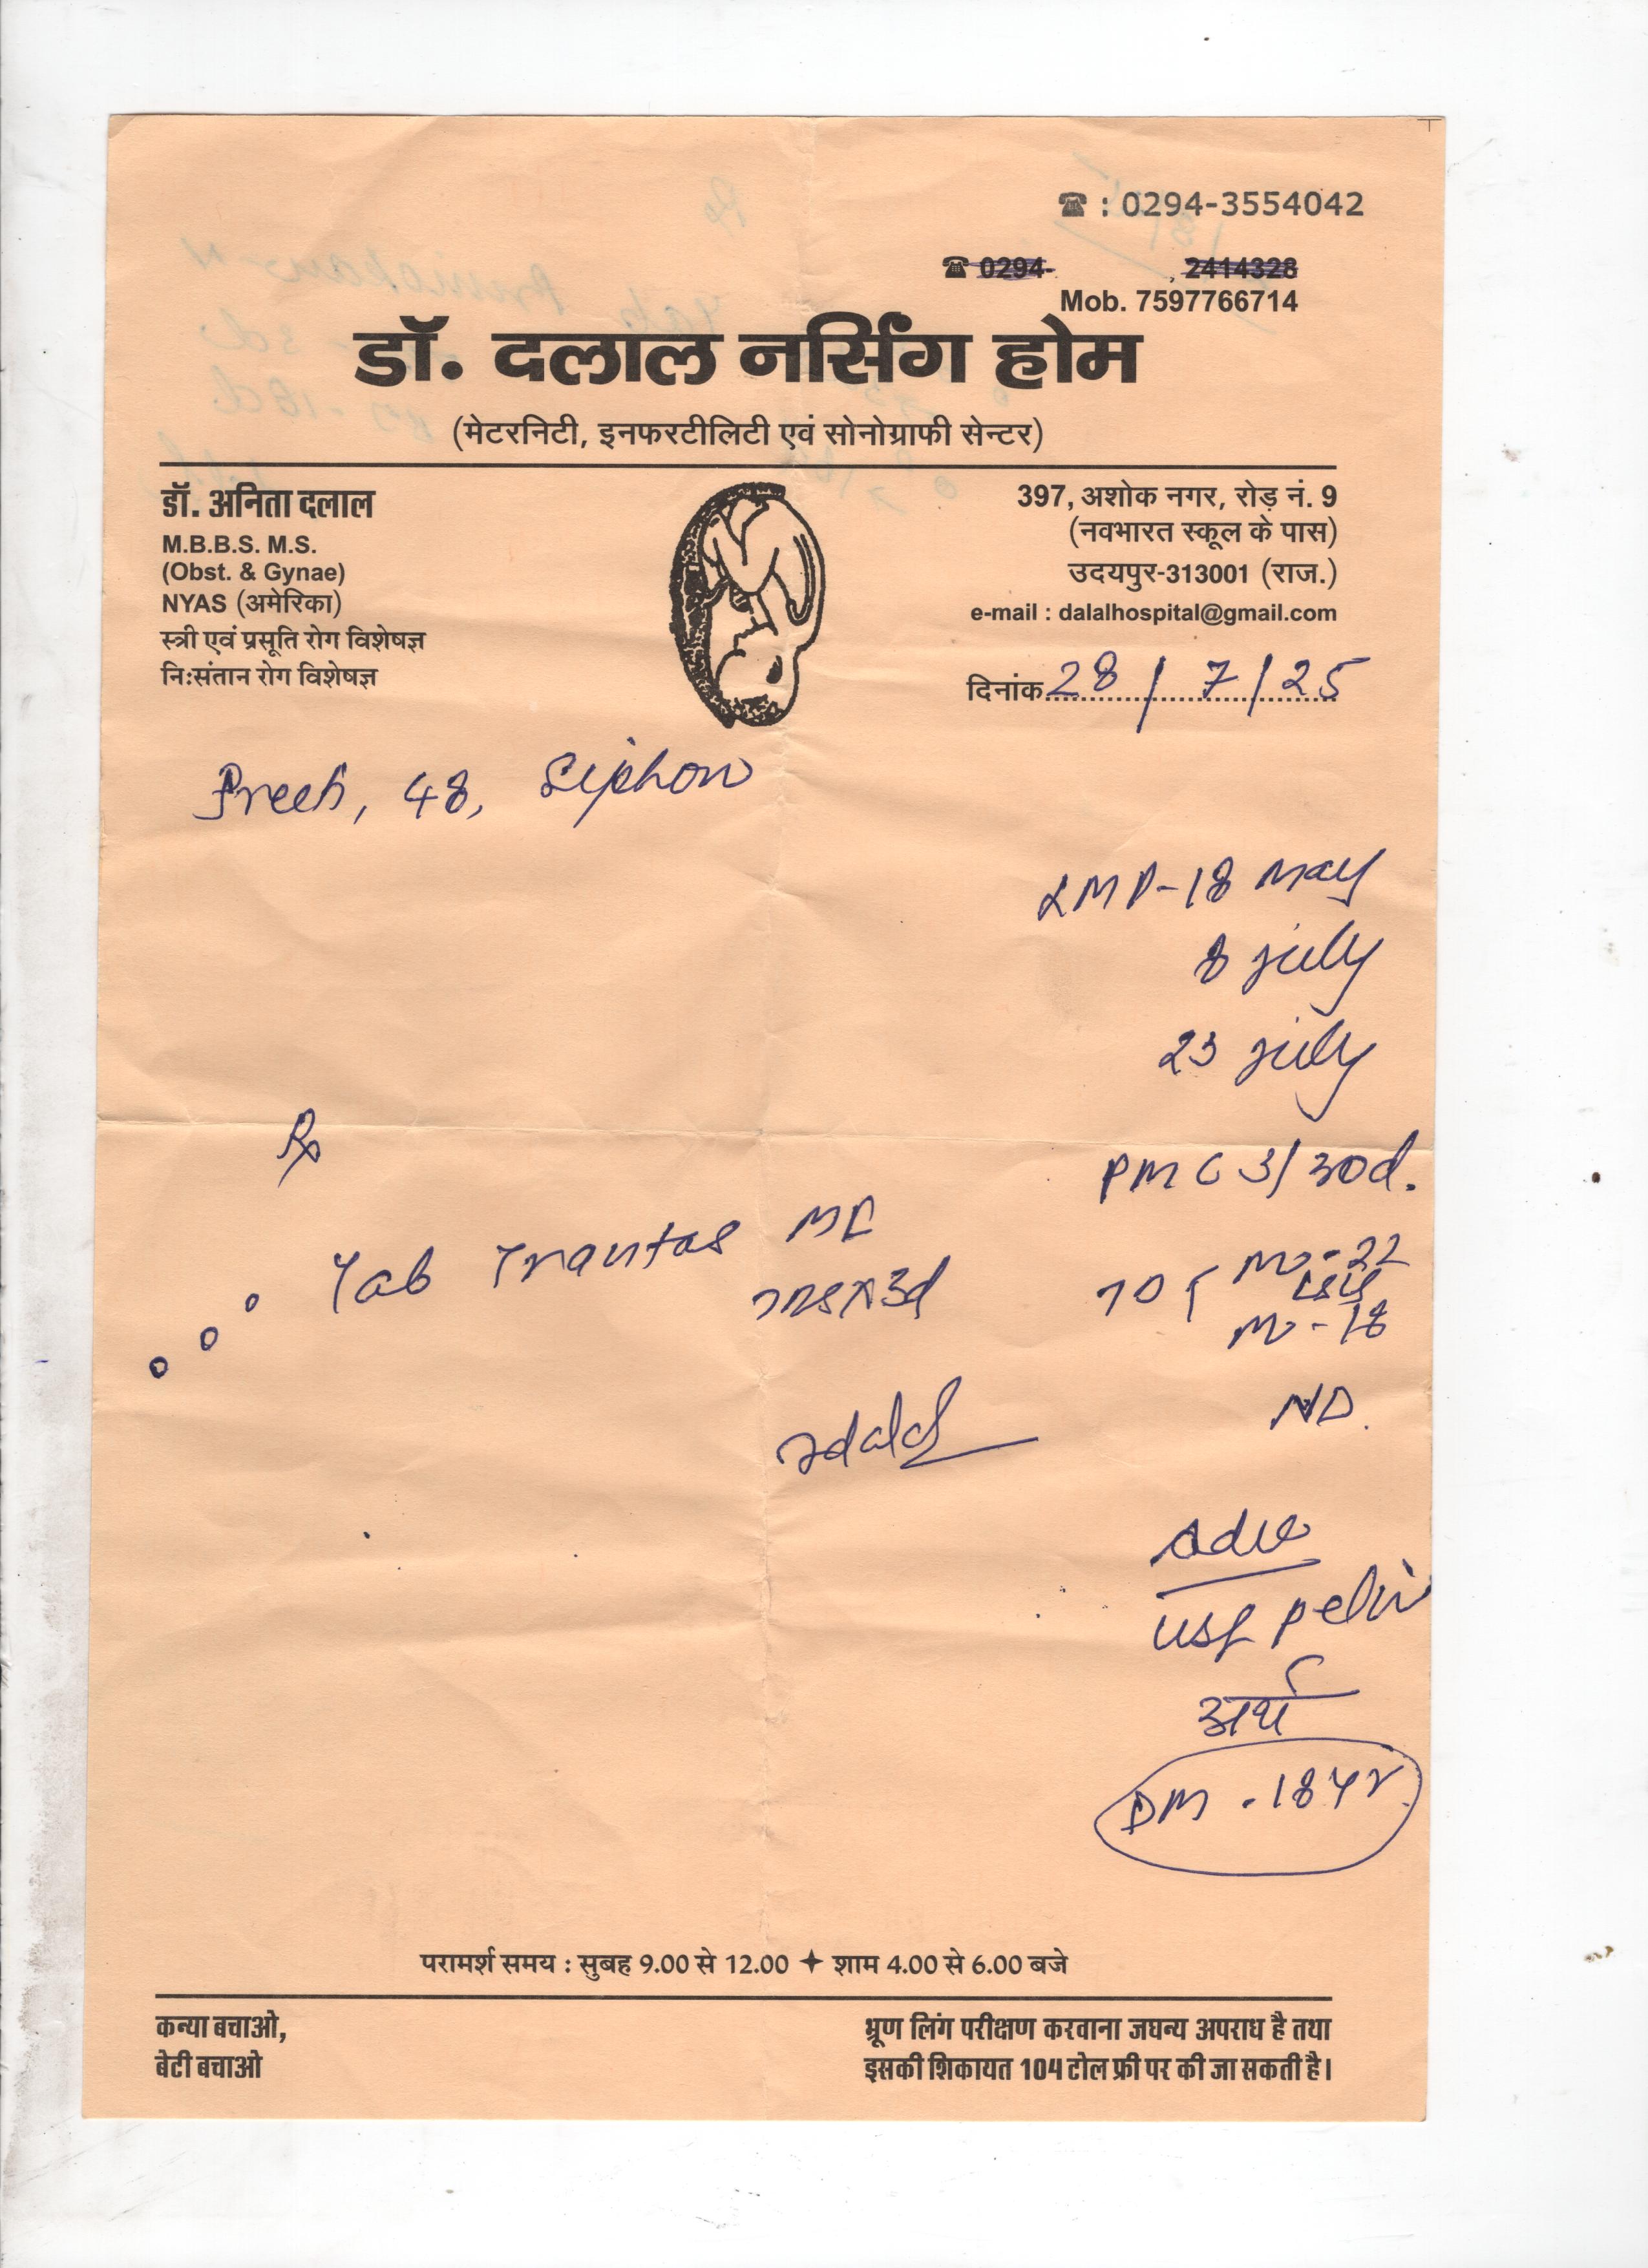 ☎ : 0294-3554042
☎ 0294- , 2414328
Mob. 7597766714
डॉ. दलाल नर्सिंग होम
(मेटरनिटी, इनफरटीलिटी एवं सोनोग्राफी सेन्टर)
डॉ. अनिता दलाल
M.B.B.S. M.S.
(Obst. & Gynae)
NYAS (अमेरिका)
स्त्री एवं प्रसूति रोग विशेषज्ञ
नि:संतान रोग विशेषज्ञ
397, अशोक नगर, रोड़ नं. 9
(नवभारत स्कूल के पास)
उदयपुर-313001 (राज.)
e-mail : dalalhospital@gmail.com
दिनांक 28/7/25
48, Siphon
LMP-18 May
8 July
23 July
Rx
PMC 3/30d.
Tab MF
x3d
22
18
ND.
adv
USG pelvis
अर्थ
DM - 18yr
परामर्श समय : सुबह 9.00 से 12.00 ✦ शाम 4.00 से 6.00 बजे
कन्या बचाओ,
बेटी बचाओ
भ्रूण लिंग परीक्षण करवाना जघन्य अपराध है तथा
इसकी शिकायत 104 टोल फ्री पर की जा सकती है।